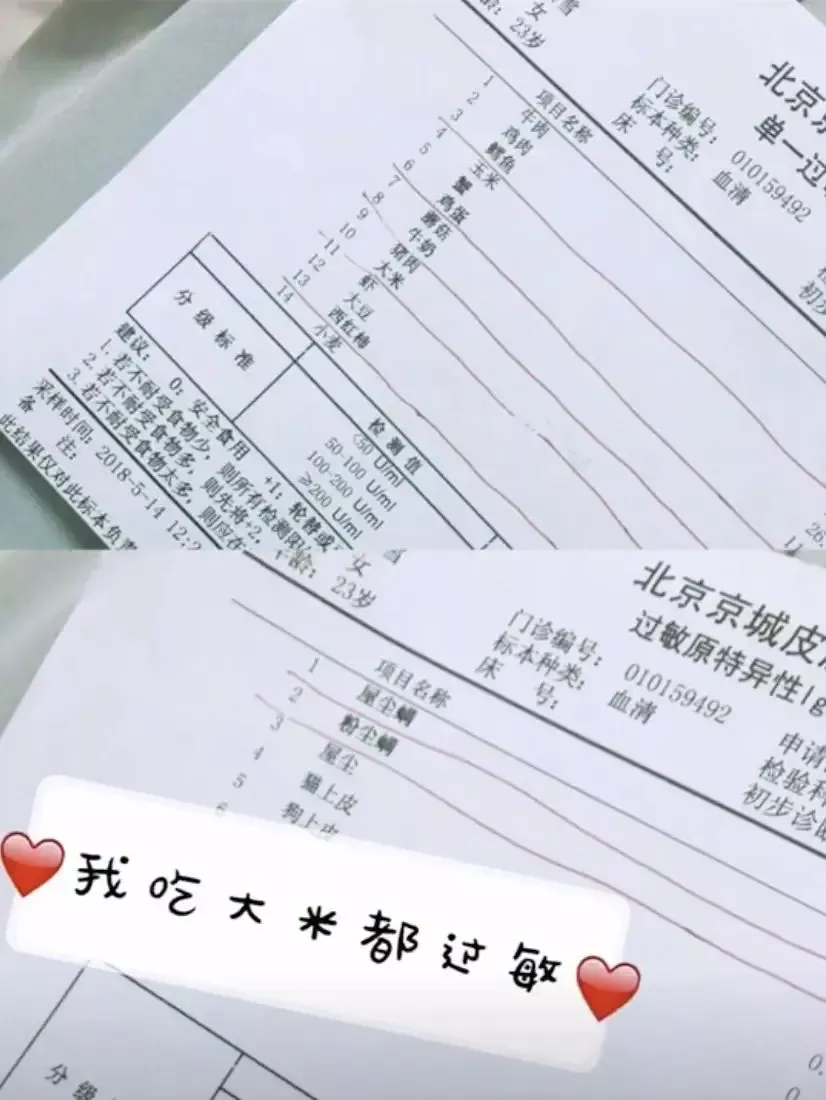 雪
女
龄: 23岁
北京京
单一过
门诊编号: 010159492
标本种类: 血清
床 号:
初
项目名称
1 牛肉
2 鸡肉
3 鳕鱼
4 玉米
5 蟹
6 鸡蛋
7 蘑菇
8 牛奶
9 猪肉
10 大米
11 虾
12 大豆
13 西红柿
14 小麦
26.
分级标准
检测值
<50 U/ml
50-100 U/ml
100-200 U/ml
≥200 U/ml
建议: 0: 安全食用 +1: 轮替或
1. 若不耐受食物少, 则所有检测阳
2. 若不耐受食物多, 则先将+2,
3. 若不耐受食物太多, 则应在
采样时间: 2018-5-14 12:2
备 注:
此结果仅对此标本负责
女
龄: 23岁
北京京城皮
过敏原特异性Ig
门诊编号: 010159492
标本种类: 血清
床 号:
申请
检验科
初步诊断
项目名称
1 屋尘螨
2 粉尘螨
3 屋尘
4 猫上皮
5 狗上皮
6
我吃大米都过敏
0.
0.
分级